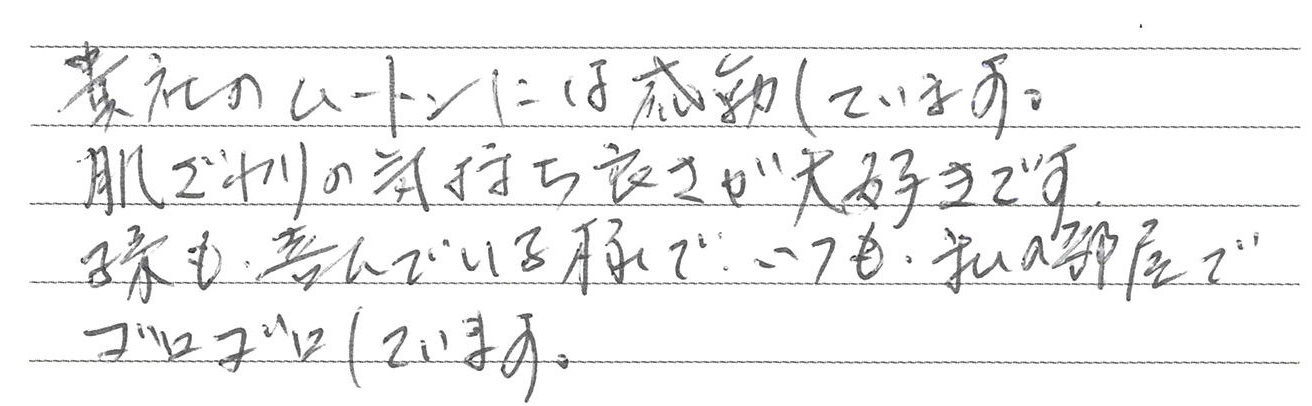 貴社のムートンには感動しています。
肌ざわりの気持ち良さが大好きです
孫も、喜んでいる様で、いつも、私の部屋で
ゴロゴロしています。